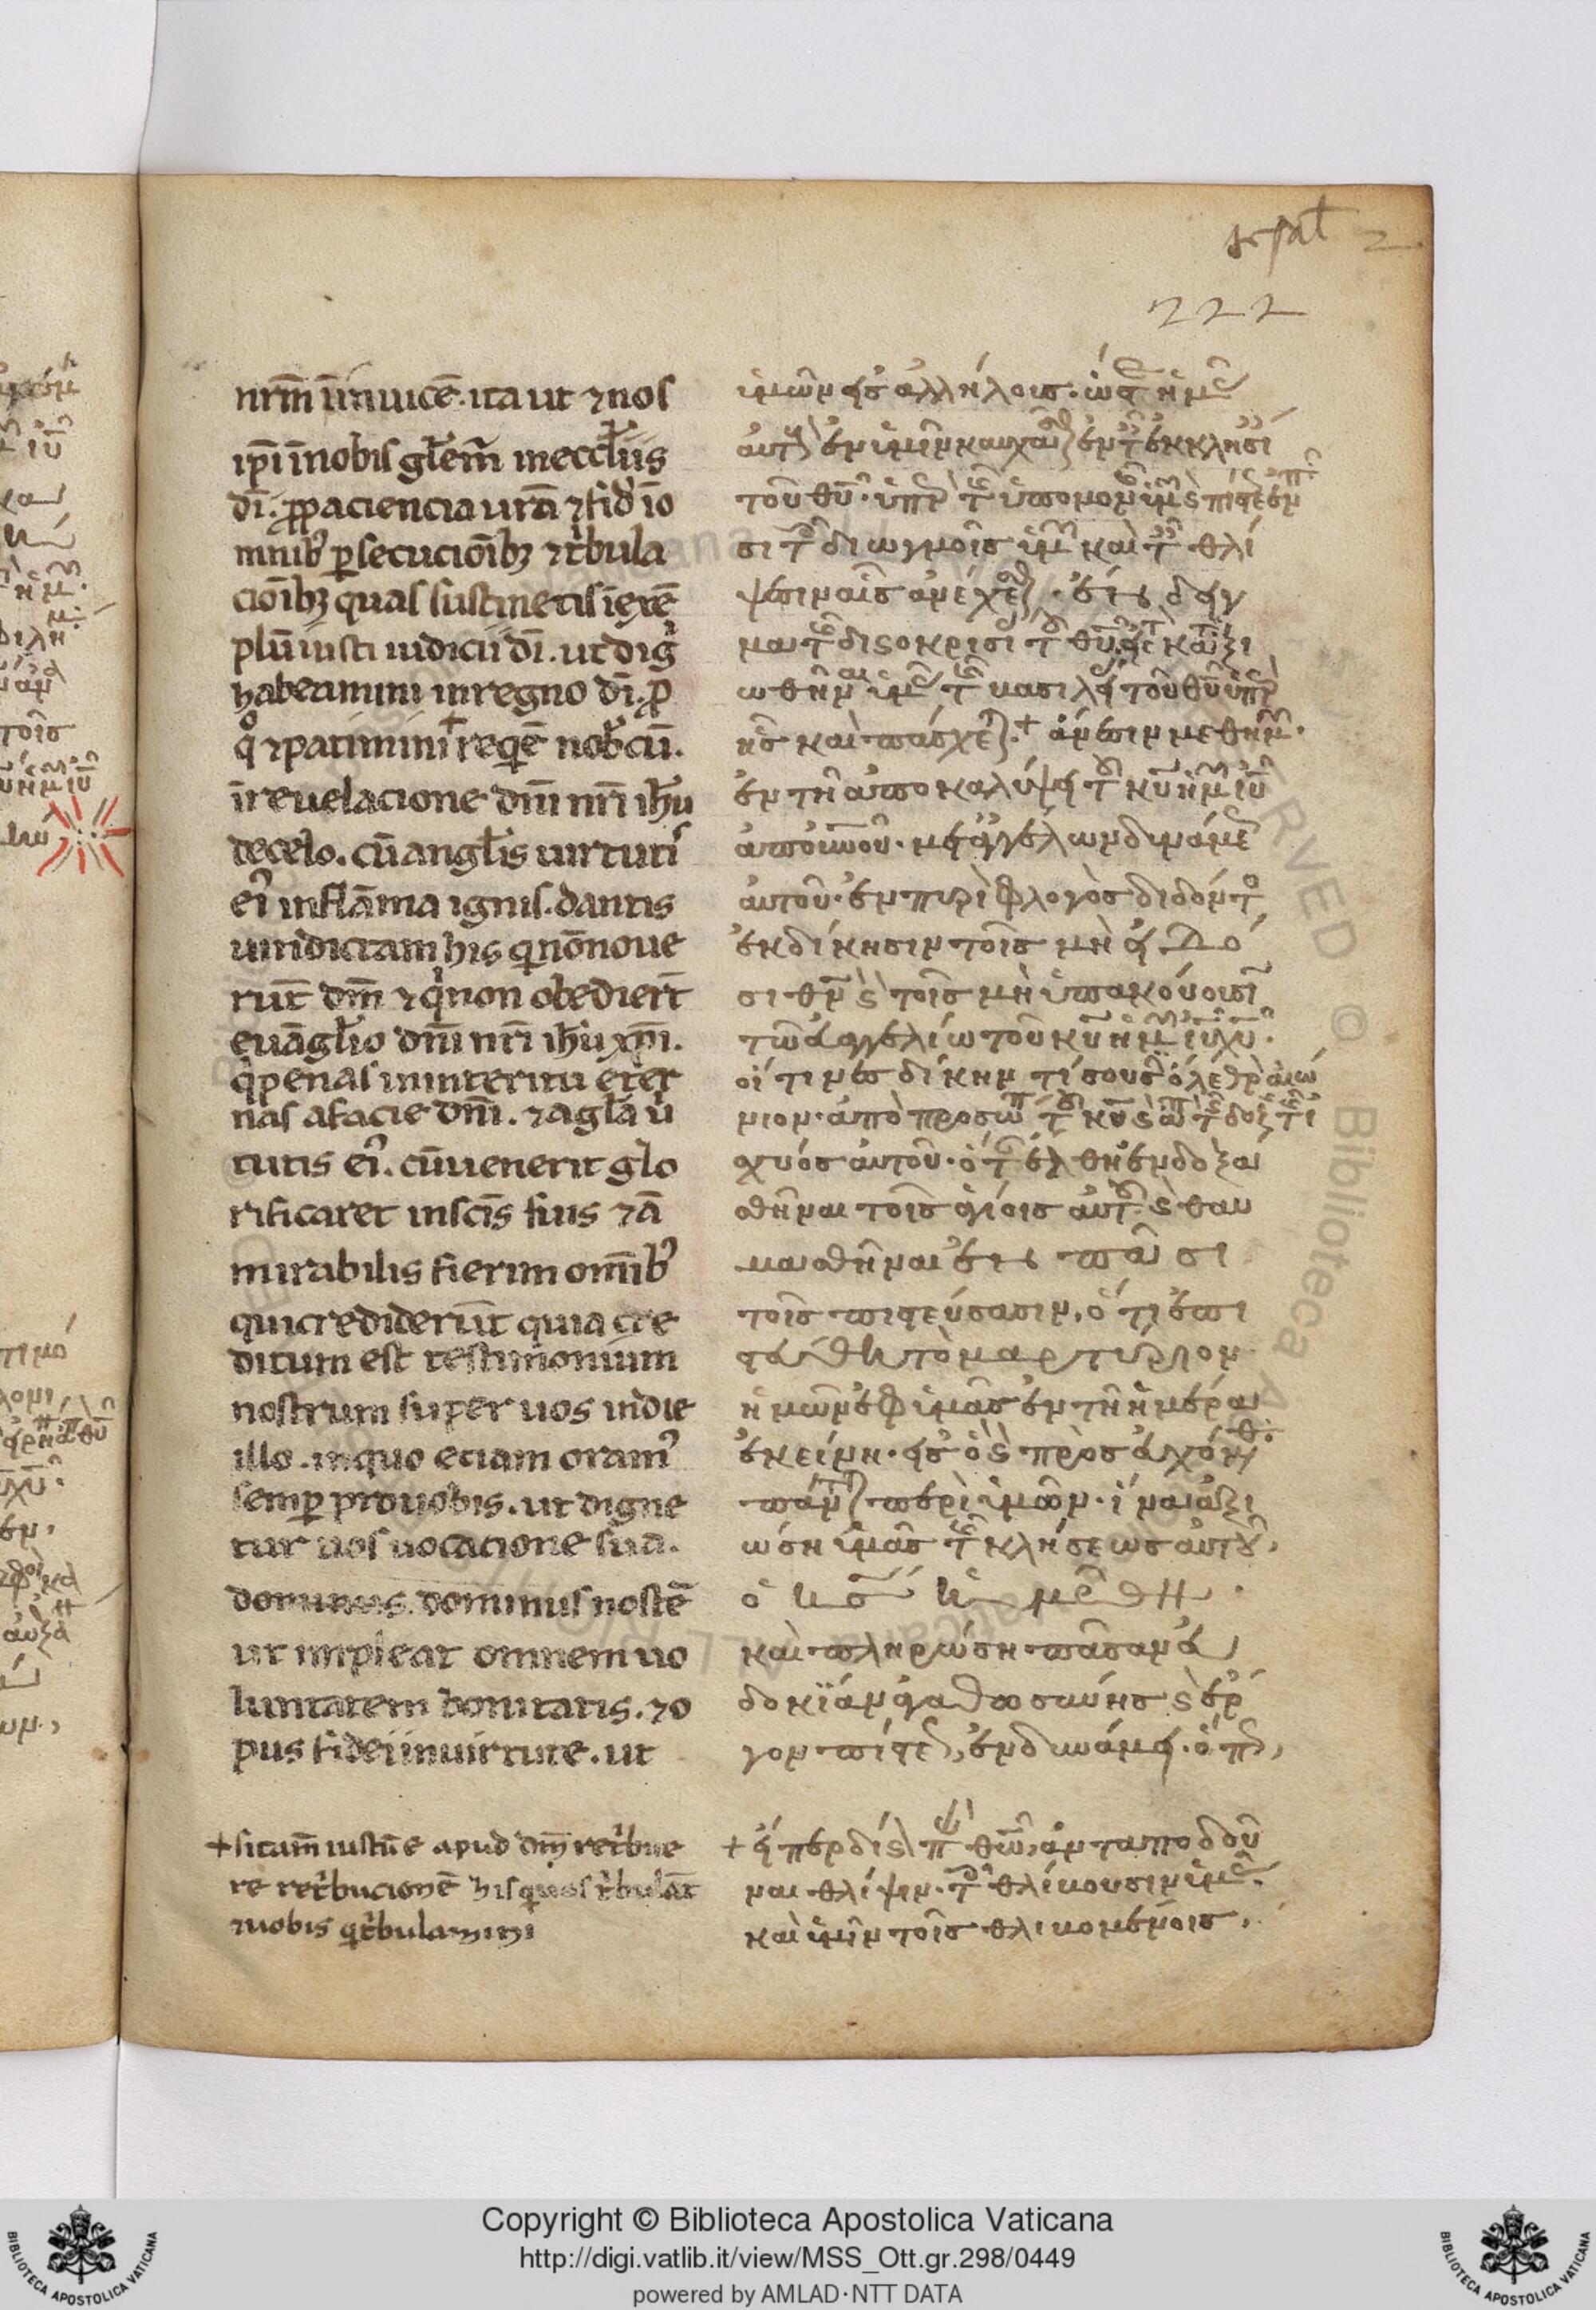 222
nr̄m īinuicē. ita ut ⁊ nos
ip̄i ī nobis gl̄em̄ in eccl̄iis
dī. ꝓ paciencia ur̄a ⁊ fid' ī o
mnib' ꝑsecucioīb; ⁊ t'bula
cioīb; quas sustinetis ī exē
plū iusti iudicii dī. ut dig
habeamini in regno dī. ꝓ
q° ⁊ patimini + reqē nob'cū.
ī reuelacione dn̄i nr̄i ih̄u
de celo. cū angl̄is uirtuti
ei' in flāma ignis. dantis
uindictam his q nō noue
rūt dm̄ ⁊ q non obediert̄
euāgl̄io dn̄i nr̄i ih̄u xp̄i.
q penas in interitu eter
nas a facie dn̄i. ⁊ a gl̄a ū
tutis ei'. cū uenerit glo
rificaret in sc̄is suis ⁊ ā
mirabilis fieri in om̄ib'
qui crediderūt quia cre
ditum est testimonium
nostrum super uos in die
illo. in quo eciam oram'
semꝑ pro uobis. ut digne
tur uos uocacione sua.
dominus. dominus nostē
ut impleat omnem uo
luntatem bonitatis. ⁊ o
pus fidei in uirtute. ut
+ si tam̄ iustū e apud dm̄ ret'bue
re ret'bucionē his q uos t'bulāt
⁊ uobis q t'bulamini
ὑμῶν εἰς ἀλλήλοις. ὥστε ἡμᾶς
αὐτοὺς ἐν ὑμῖν καυχᾶσθαι ἐν ταῖς ἐκκλησί
τοῦ θῦ. ὑπὲρ τῆς ὑπομονῆς ὑμῶν ϗ πίστεως ἐν πᾶ
σι τοῖς διωγμοῖς ὑμῶν καὶ ταῖς θλί
ψεσιν αἷς ἀνέχεσθε. ἔνδειγ
μα τῆς δικαίας κρίσεως τοῦ θῦ. εἰς τὸ καταξι
ωθῆναι ὑμᾶς τῆς βασιλείας τοῦ θῦ ὑπὲρ
ἧς καὶ πάσχετε. + ἄνεσιν μεθ' ἡμῶν.
ἐν τῇ ἀποκαλύψει τοῦ κῦ ἡμῶν ἰῦ
ἀπ' οὐνοῦ. μετ' ἀγγέλων δυνάμεως
αὐτοῦ. ἐν πυρὶ φλογὸς διδόντος
ἐκδίκησιν τοῖς μὴ εἰδό
σι θν ϗ τοῖς μὴ ὑπακούουσι
τῷ εὐαγγελίῳ τοῦ κῦ ἡμῶν ἰῦ χῦ.
οἵτινες δίκην τίσουσιν ὄλεθρον αἰώ
νιον. ἀπὸ προσώπου τοῦ κῦ ϗ ἀπὸ τῆς δόξης τῆς ἰ
σχύος αὐτοῦ. ὅταν ἔλθῃ ἐνδοξα
σθῆναι τοῖς ἁγίοις αὐτοῦ ϗ θαυ
μασθῆναι ἐν πᾶσι
τοῖς πιστεύσασιν. ὅτι ἐπι
στεύθη τὸ μαρτύριον
ἡμῶν ἐφ' ὑμᾶς ἐν τῇ ἡμέρᾳ
ἐκείνῃ. εἰς ὃ ϗ προσευχόμεθα
πάντοτε περὶ ὑμῶν. ἵνα ἀξι
ώσῃ ὑμᾶς τῆς κλήσεως αὐτοῦ,
ὁ θς ἡμῶν
καὶ πληρώσῃ πᾶσαν εὐ
δοκίαν ἀγαθωσύνης ϗ ἔρ
γον πίστεως, ἐν δυνάμει. ὅπως
+ εἴπερ δίκαιον παρὰ θῷ, ἀνταποδοῦ
ναι θλίψιν. τοῖς θλίβουσιν ὑμᾶς.
καὶ ὑμῖν τοῖς θλιβομένοις.
Copyright © Biblioteca Apostolica Vaticana
http://digi.vatlib.it/view/MSS_Ott.gr.298/0449
powered by AMLAD·NTT DATA